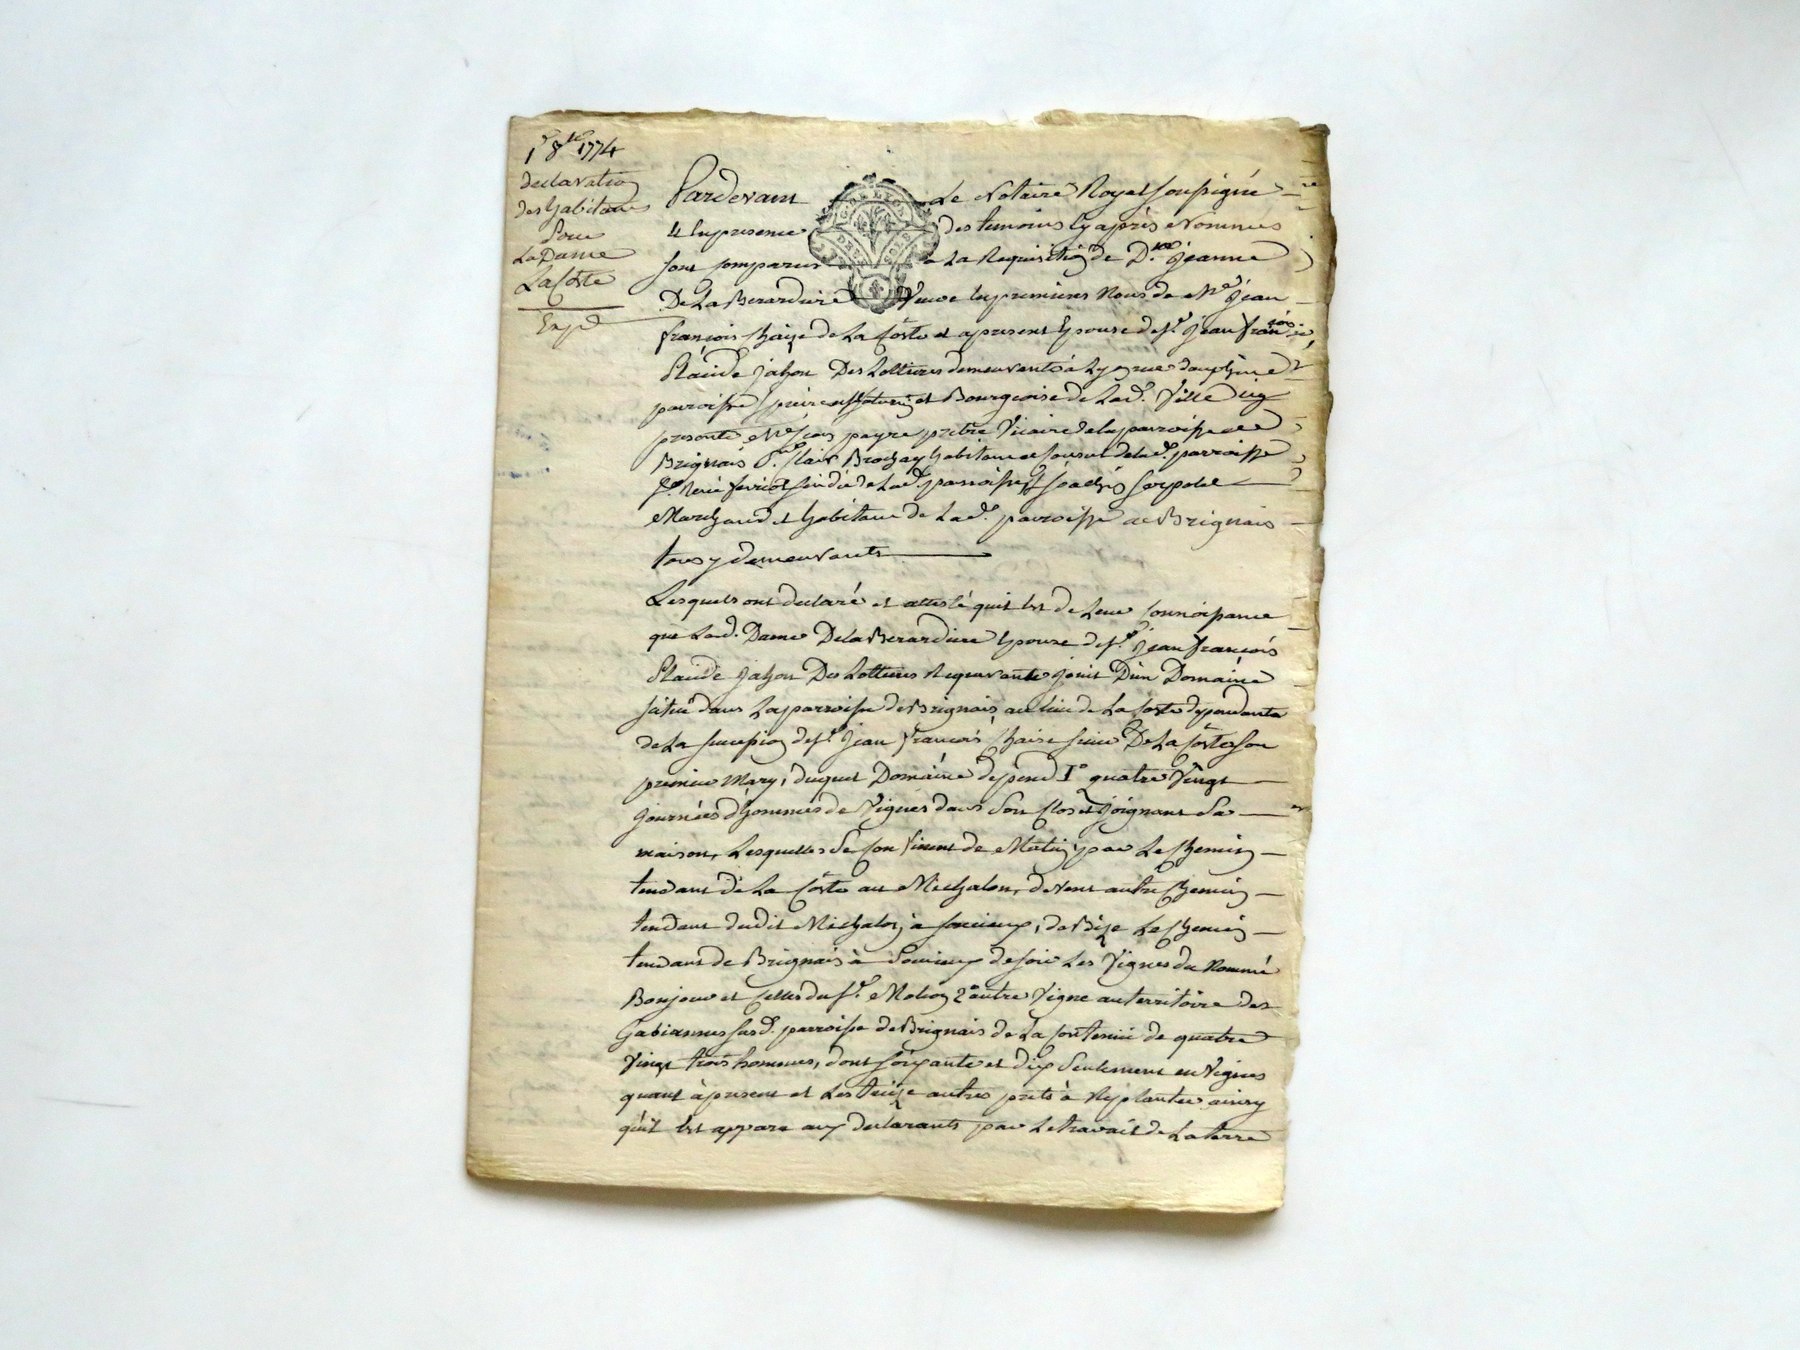 1r 8bre 1774
declaration
des habitans
Pour
La Dame
La Coste
Expd
Pardevant Le Notaire Royal soussigné
& en presence des temoins Cy après Nommés
sont comparus a La Requisition de De Jeanne
De La Berardiere Veuve en premieres Nous de Me Jean
françois Chaize de La Coste et apresent Epouse de Sr Jean françois
Claude Jahon Des Lottieres demeurante à Lyon rue dauphine
parroisse et Bourgeoise de Lad. Ville icy
presente Me Jean payre prêtre Vicaire de la parroisse de
Brignais Sr Clair Brochay habitant et Consul de lad. parroisse
Sr René sindic de Lad. parroisse, Sr
Marchand et habitant de Lad. parroisse de Brignais
tous y demeurants
Lesquels ont declaré et attesté quil est de Leur Connoissance
que Lad. Dame De La Berardiere Epouse de Sr Jean François
Claude Jahon Des Lottieres Requerante Jouit D'un Domaine
situé dans La parroisse de Brignais, au lieu de La Coste dependante
de La succession de Sr Jean François Chaize sieur De La Coste son
premier Mary, duquel Domaine dépend 1° quatre Vingt
Journées d'hommes de Vignes dans son Clos et Joignant Sa
maison, Lesquelles se Confinent de Matin par Le Chemin
tendant de La Coste au Michalon, de Vent autre Chemin
tendant dudit Michalon à , de Bize Le Chemin
tendant de Brignais à de soir Les Vignes du Nommé
Bonjour et Celles du Sr. 2° autre Vigne au territoire des
susd. parroisse de Brignais de La Contenue de quatre
Vingt trois hommes, dont soixante et dix seulement en Vignes
quant à present et Les treize autres prêts à Replanter ainsy
qu'il Est apparu aux declarants par Le travail de La terre